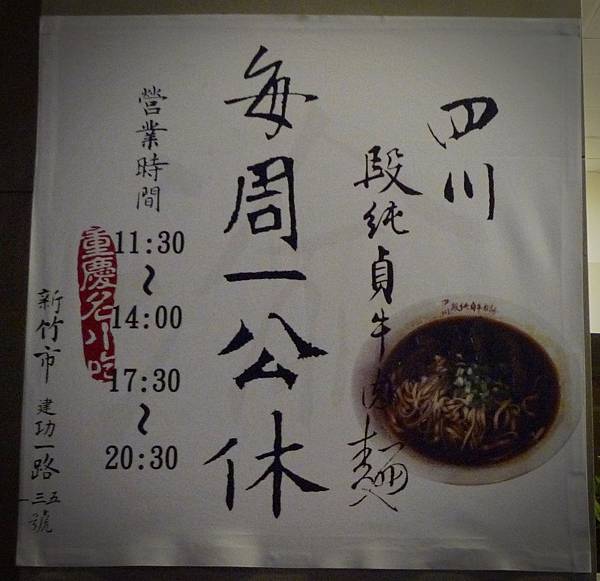 四川
段純貞牛肉麵
每周一公休
營業時間
11:30
~
14:00
17:30
~
20:30
重慶名小吃
新竹市 建功一路
一三五
號